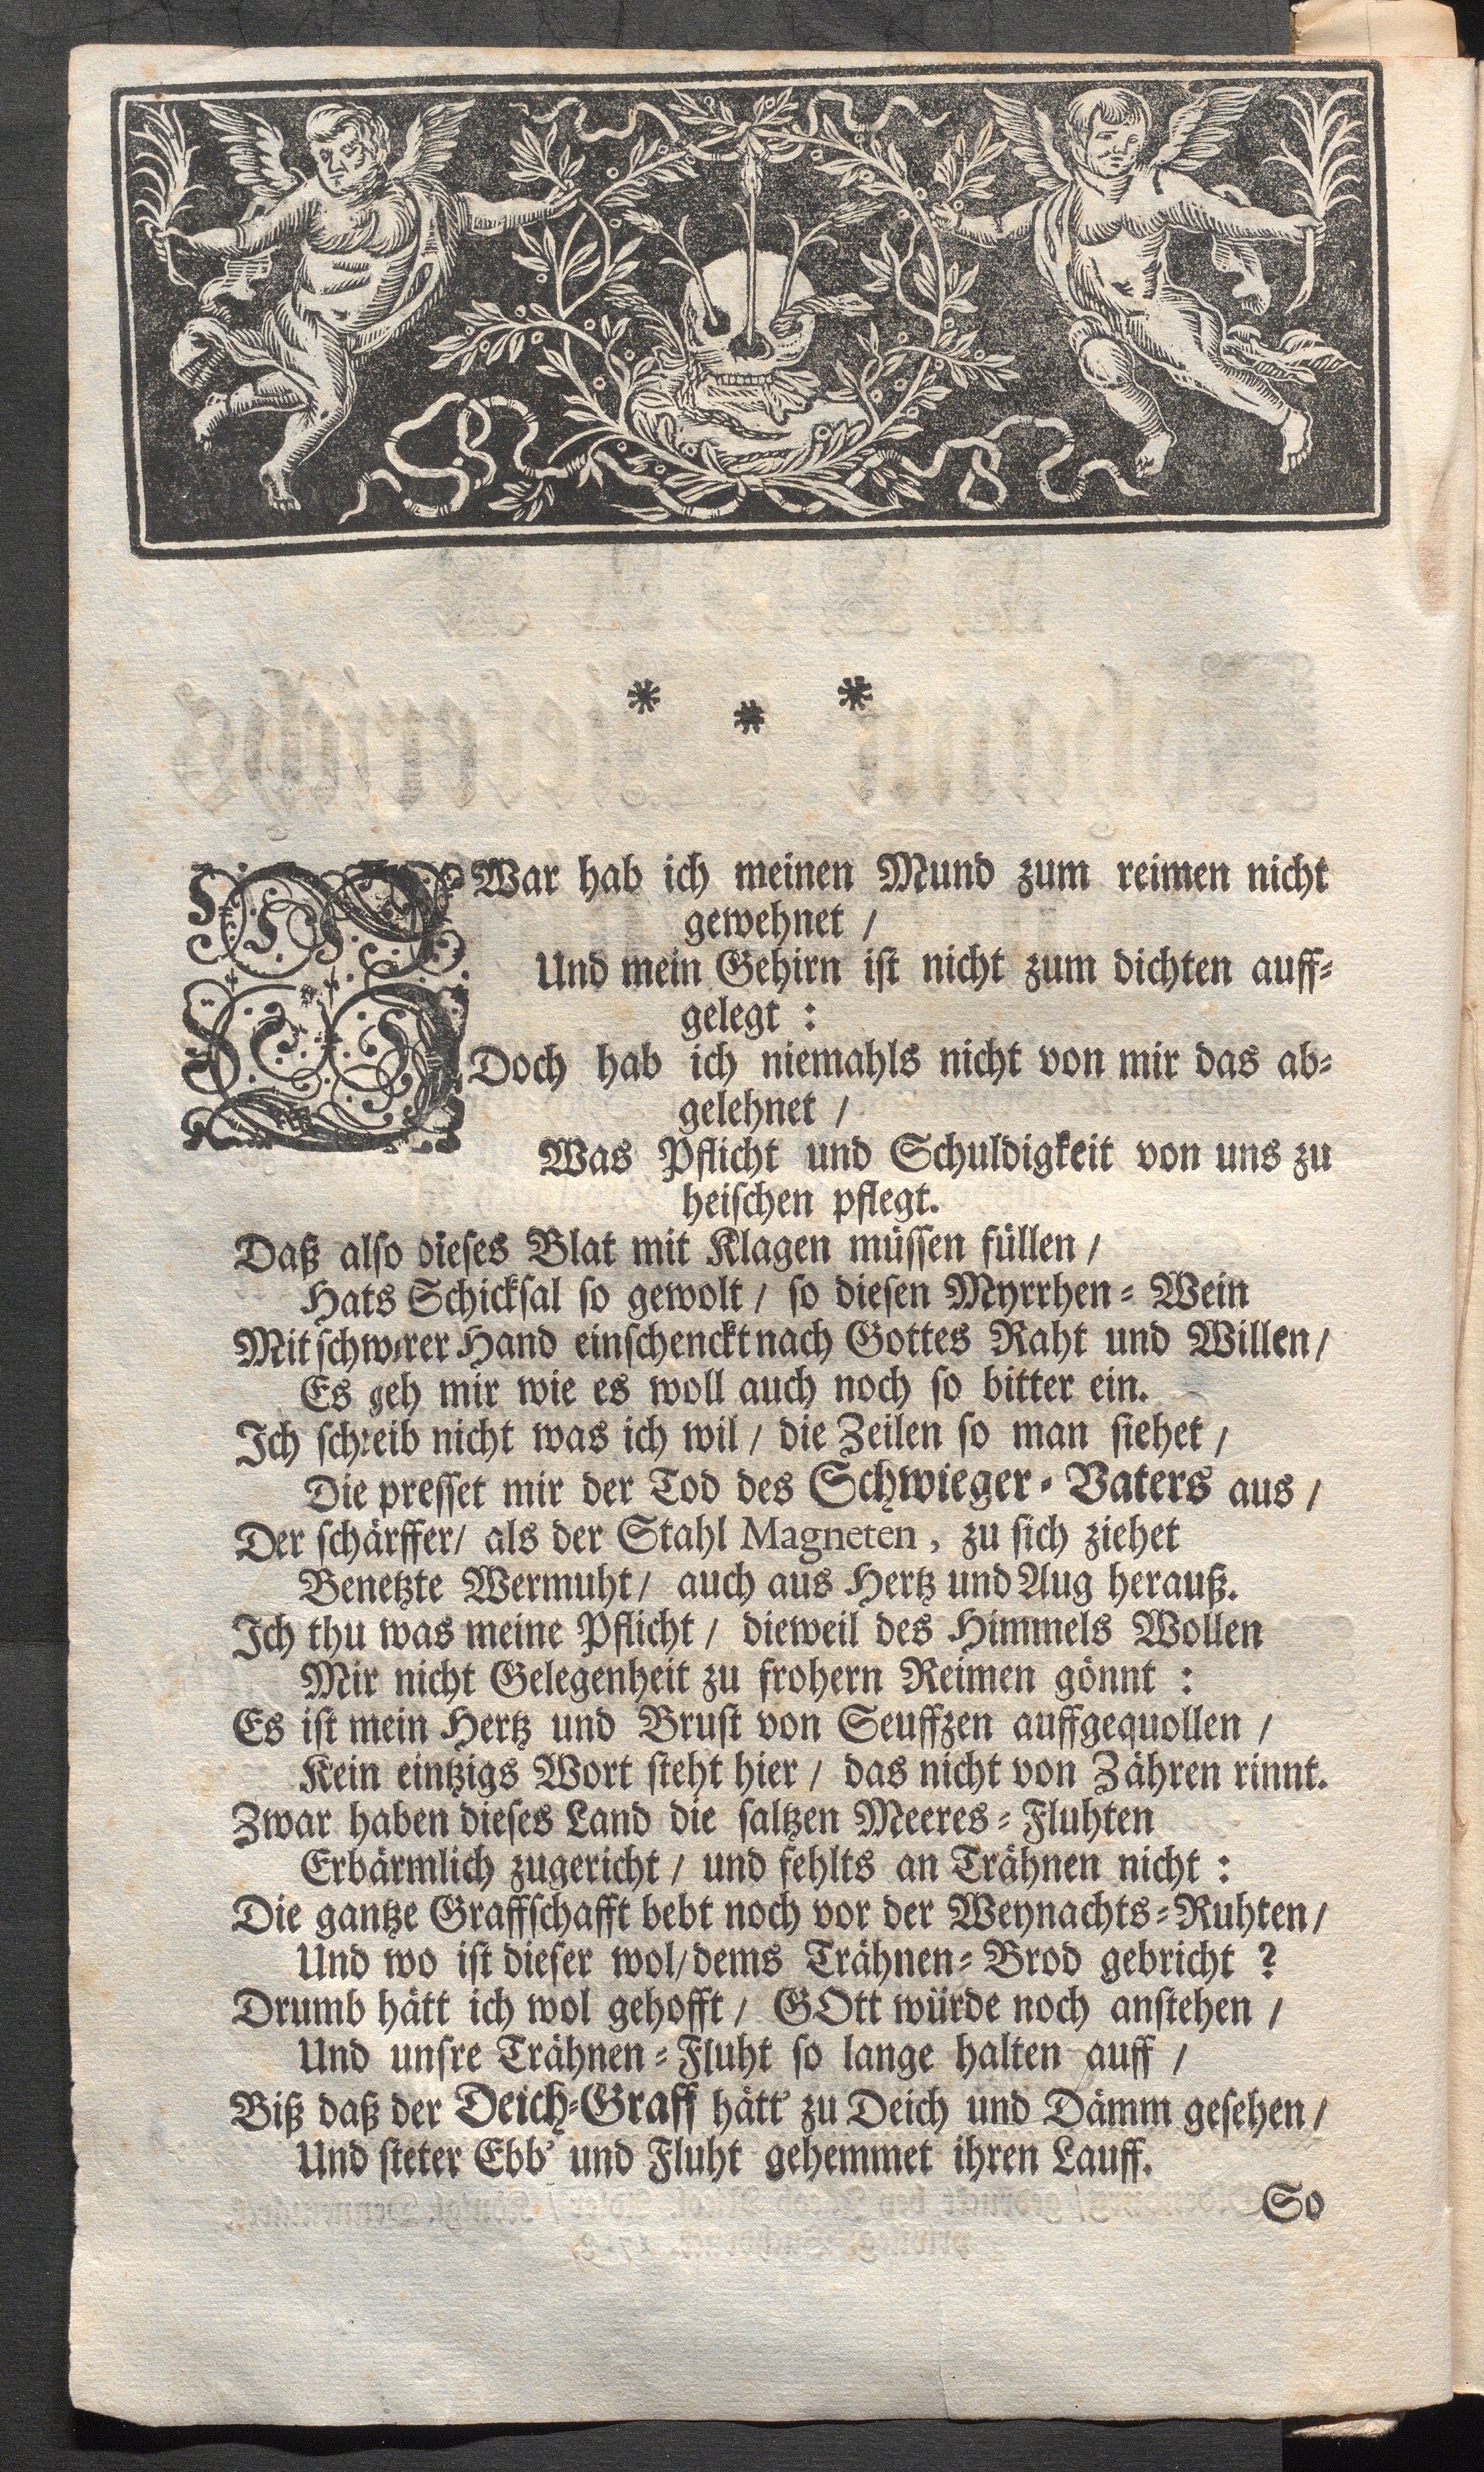 * * *
ZWar hab ich meinen Mund zum reimen nicht
gewehnet /
Und mein Gehirn ist nicht zum dichten auff=
gelegt :
Doch hab ich niemahls nicht von mir das ab=
gelehnet /
Was Pflicht und Schuldigkeit von uns zu
heischen pflegt.
Daß also dieses Blat mit Klagen müssen füllen /
Hats Schicksal so gewolt / so diesen Myrrhen = Wein
Mit schwerer Hand einschenckt nach Gottes Raht und Willen /
Es geh mir wie es woll auch noch so bitter ein.
Ich schreib nicht was ich wil / die Zeilen so man siehet /
Die presset mir der Tod des Schwieger = Vaters aus /
Der schärffer / als der Stahl Magneten , zu sich ziehet
Benetzte Wermuht / auch aus Hertz und Aug herauß.
Ich thu was meine Pflicht / dieweil des Himmels Wollen
Mir nicht Gelegenheit zu frohern Reimen gönnt :
Es ist mein Hertz und Brust von Seuffzen auffgequollen /
Kein eintzigs Wort steht hier / das nicht von Zähren rinnt.
Zwar haben dieses Land die saltzen Meeres = Fluhten
Erbärmlich zugericht / und fehlts an Trähnen nicht :
Die gantze Graffschafft bebt noch vor der Weynachts = Ruhten /
Und wo ist dieser wol / dems Trähnen = Brod gebricht ?
Drumb hätt ich wol gehofft / GOtt würde noch anstehen /
Und unsre Trähnen = Fluht so lange halten auff /
Biß daß der Deich=Graff hätt' zu Deich und Dämm gesehen /
Und steter Ebb' und Fluht gehemmet ihren Lauff.
So